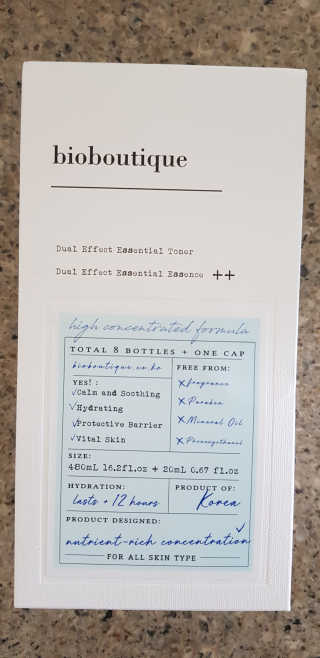 bioboutique
Dual Effect Essential Toner
Dual Effect Essential Essence ++
high concentrated formula
TOTAL 8 BOTTLES + ONE CAP
bioboutique.co.kr
YES! :
✓Calm and Soothing
✓Hydrating
✓Protective Barrier
✓Vital Skin
FREE FROM:
×Fragrance
×Paraben
×Mineral Oil
×Phenoxyethanol
SIZE:
480mL 16.2fl.oz + 20mL 0.67 fl.oz
HYDRATION:
lasts +12 hours
PRODUCT OF:
Korea
PRODUCT DESIGNED:
nutrient-rich concentration
FOR ALL SKIN TYPE